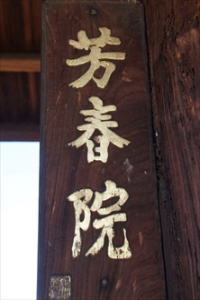 芳春院